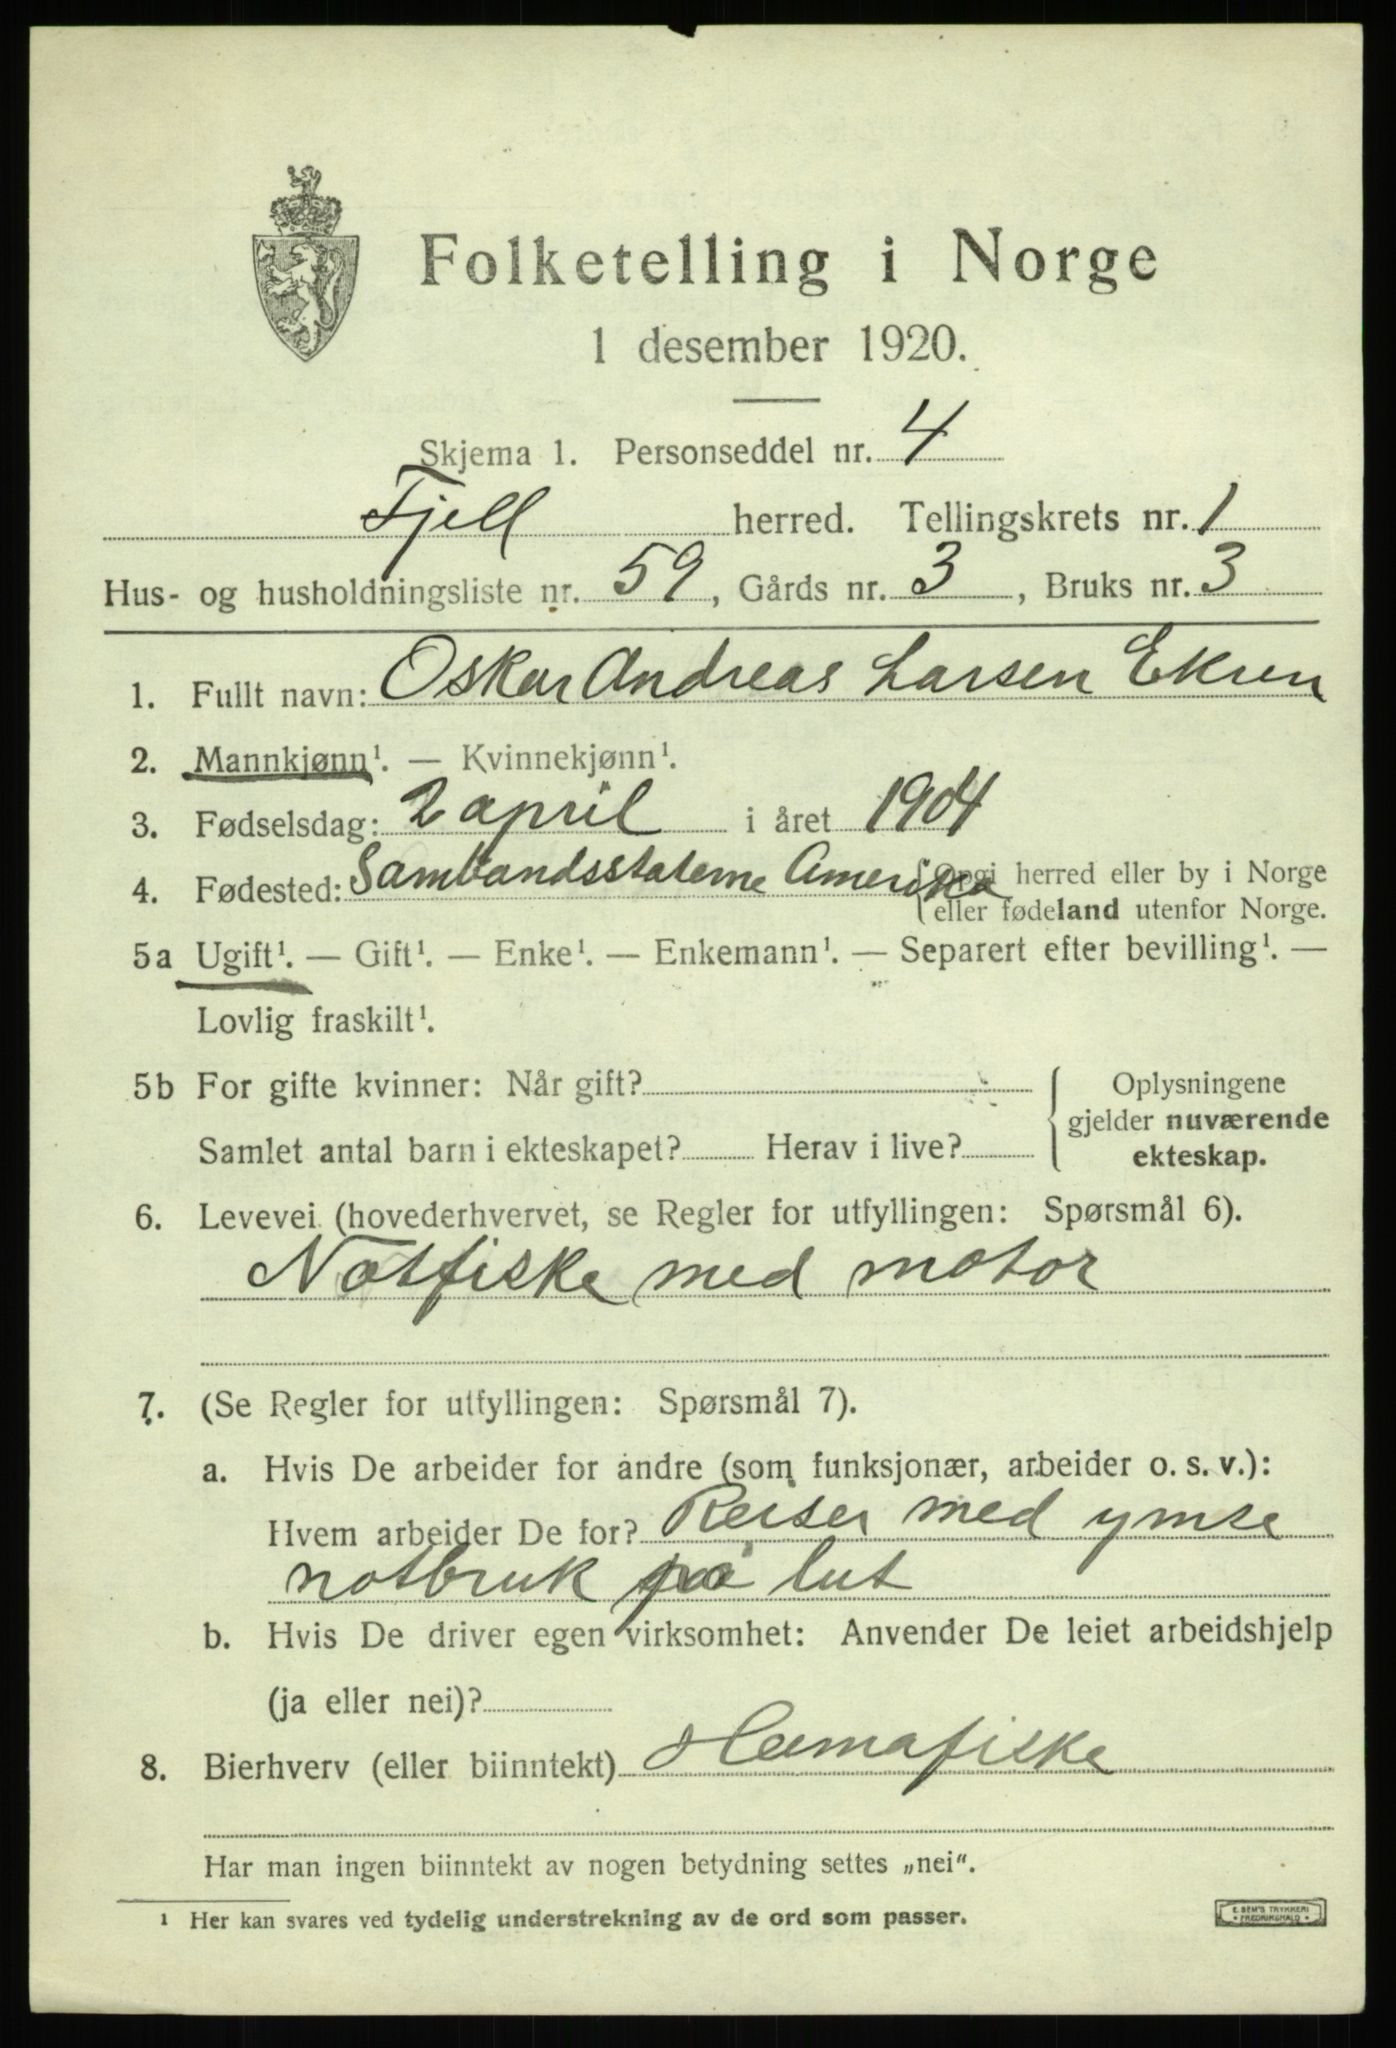 Folketelling i Norge
1 desember 1920.
Skjema 1. Personseddel nr. 4
Fjell herred. Tellingskrets nr. 1
Hus- og husholdningsliste nr. 59, Gårds nr. 3, Bruks nr. 3
1. Fullt navn: Oskar Andreas Larsen Ekren
2. Mannkjønn¹. — Kvinnekjønn¹.
3. Fødselsdag: 2 april i året 1904
4. Fødested: Sambandsstaterne Amerika { Opgi herred eller by i Norge
eller fødeland utenfor Norge.
5a Ugift¹. — Gift¹. — Enke¹. — Enkemann¹. — Separert efter bevilling¹. —
Lovlig fraskilt¹.
5b For gifte kvinner: Når gift? { Oplysningene
gjelder nuværende
Samlet antal barn i ekteskapet? Herav i live? ekteskap.
6. Levevei (hovederhvervet, se Regler for utfyllingen: Spørsmål 6).
Notfiske med motor
7. (Se Regler for utfyllingen: Spørsmål 7).
a. Hvis De arbeider for andre (som funksjonær, arbeider o. s. v.):
Hvem arbeider De for? Reiser med ymse
notbruk på lut
b. Hvis De driver egen virksomhet: Anvender De leiet arbeidshjelp
(ja eller nei)?
8. Bierhverv (eller biinntekt) Heimafiske
Har man ingen biinntekt av nogen betydning settes „nei“.
¹ Her kan svares ved tydelig understrekning av de ord som passer.
E. SEM'S TRYKKERI
• FREDRIKSHALD •